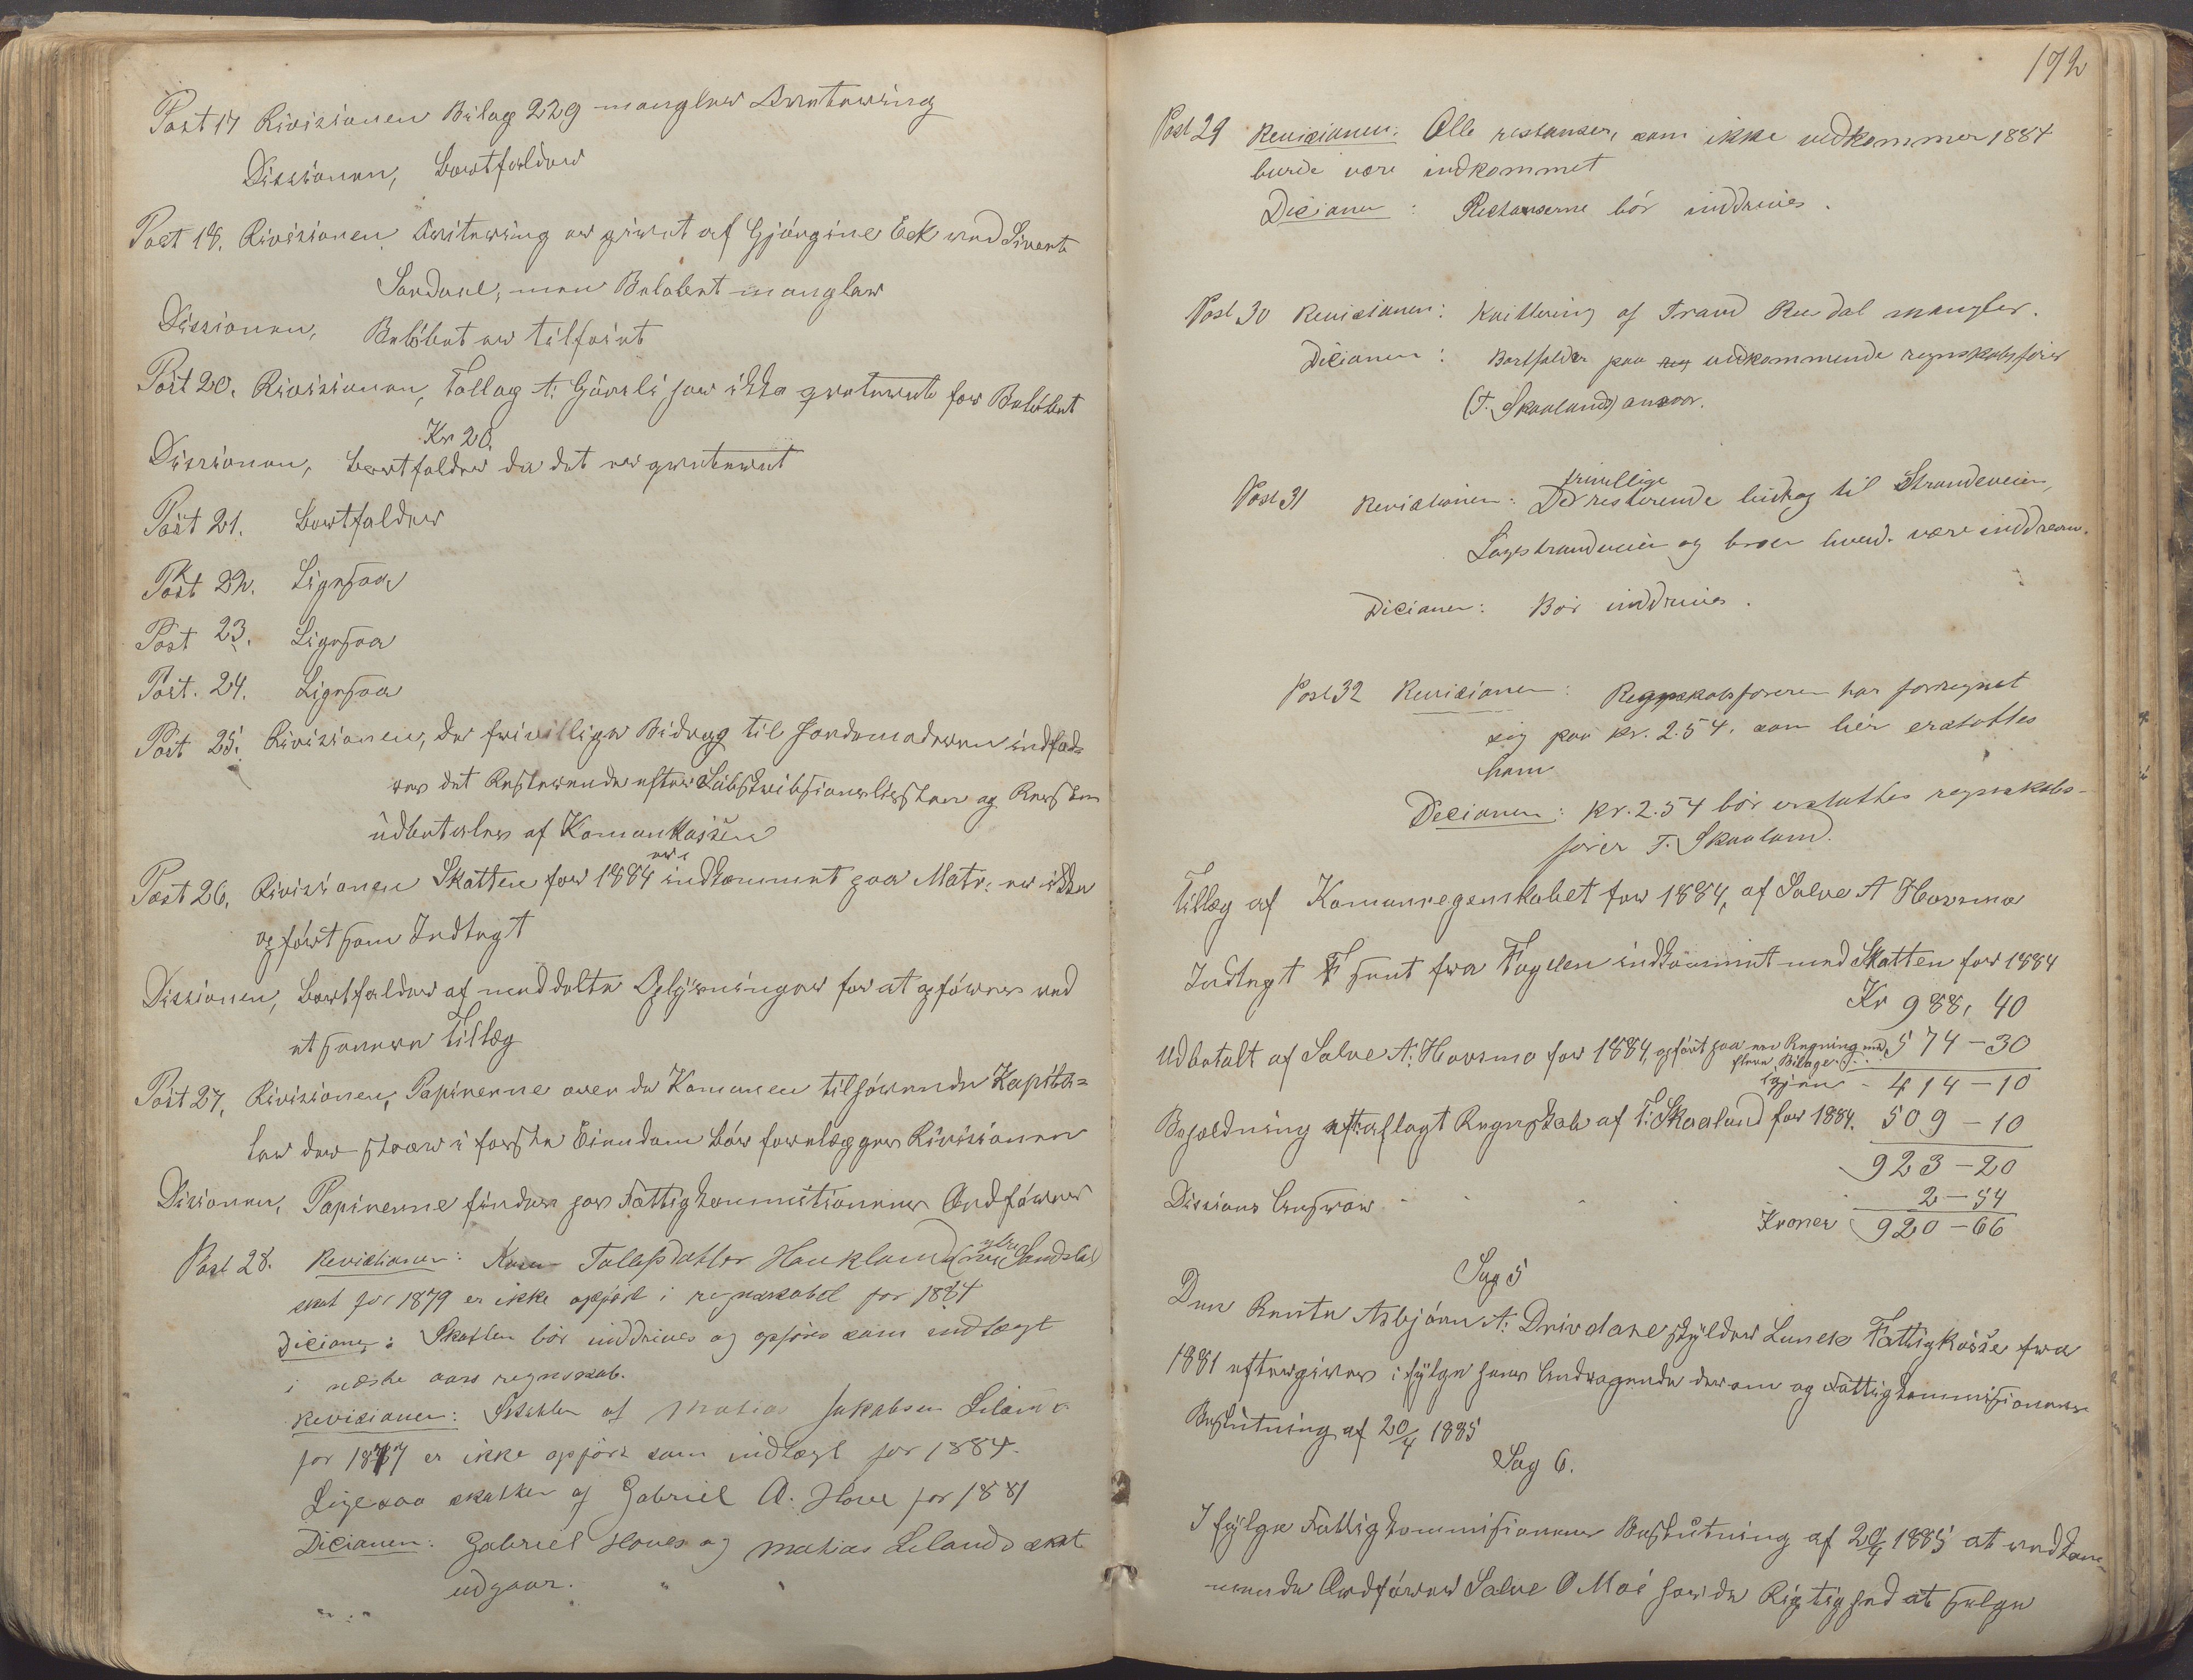 Post 17 Rivisionen Bilag 229 mangler Qvetering
Dissionen, Bortfalder
Post 18. Rivisionen Qvitering er givet af Gjørgine Eek ved Sivert
Sandael, men Beløbet mangler
Dissionen, Beløbet er tilføiet
Post 20. Rivisionen, Tollag T: Gursli har ikke qveteret for Beløbet
Kr 20.
Dissionen, bortfalder da det er qveteret
Post 21. Bortfalder
Post 22. Ligesaa
Post 23. Ligesaa
Post. 24. Ligesaa
Post 25. Rivisionen, De frivillige Bidrag til Jordemoderen indfad-
res det Resterende efter Subskribsionslisten og Resten
udbetales af Komunkassen
er
Post 26. Rivisionen Skatten for 1884 indkommet paa Matr: er ikke
opført som Indtegt
Dissionen, Bortfalder af meddelte Oplysninger for at opføres ved
et senere Tillæg
Post 27, Rivisionen, Papirerne over de Komunen tilhørende Kapita-
ler der staar i faste Eiendom bør forelægges Rivisionen
Disionen, Papirerne findes hos Fattigkommitionens Ordfører
ytre
Post 28. Revisionen: Karen Tollefsdatter Haukland (nu Sandstøl)
skat for 1879 er ikke opført i regnskabet for 1884
Dicionen: Skatten bør inddrives og opføres som indtægt
i næste aars regnskab.
Revisionen: Skatten af Matias Jakobsen Leland
for 1877 er ikke opført som indtægt for 1884.
Ligesaa skatten af Gabriel A. Hove for 1881
Dicionen: Gabriel Hoves og Matias Lelands skat
udgaar.
172
Post 29 Revisionen: Alle restanser, som ikke vedkommer 1884
burde være indkommet
Decionen: Restanserne bør inddrives.
Post 30 Revisionen: Kvittering af Trand Ruedal mangler.
Dicionen: Bortfalder paa vedkommende regnskabsfører
(T. Skaalands) ansvar.
frivillige
Post 31 Revisionen: Det resterende bidrag til Strandeveien,
Lagestrandveien og broen burde være inddreven.
Dicionen: Bør inddrives.
Post 32 Revisionen: Regnskabsføreren har forregnet
sig paa kr. 2.54. som bør erstattes
ham
Decionen: kr. 2.54 bør erstattes regnskabs-
fører T. Skaaland.
Tillæg af Komunregenskabet for 1884, af Salve A Hovsmo
Indtegt sent fra Fogden indkommet med Skatten for 1884
Kr 988, 40
Udbetalt af Salve A: Hovsmo for 1884, opført paa en Regning med 574-30
flere Bilager
igjen - 414-10
Beholdning eft: aflagt Regnskab af T: Skaaland for 1884. 509-10
923-20
Dissions Ansvar 2-54
Kroner 920-66
Sag 5
Den Rente Asbjørn A: Drivdane skylder Lunds Fattigkasse fra
1881 eftergives i fylge hans Andragende derom og Fattigkommisionens
Beslutning af 20/4 1885
Sag 6.
I fylge Fattigkommisionens Beslutning af 20/4 1885 at vedkom-
mende Ordfører Salve O Moi har de Rigtighed at selge